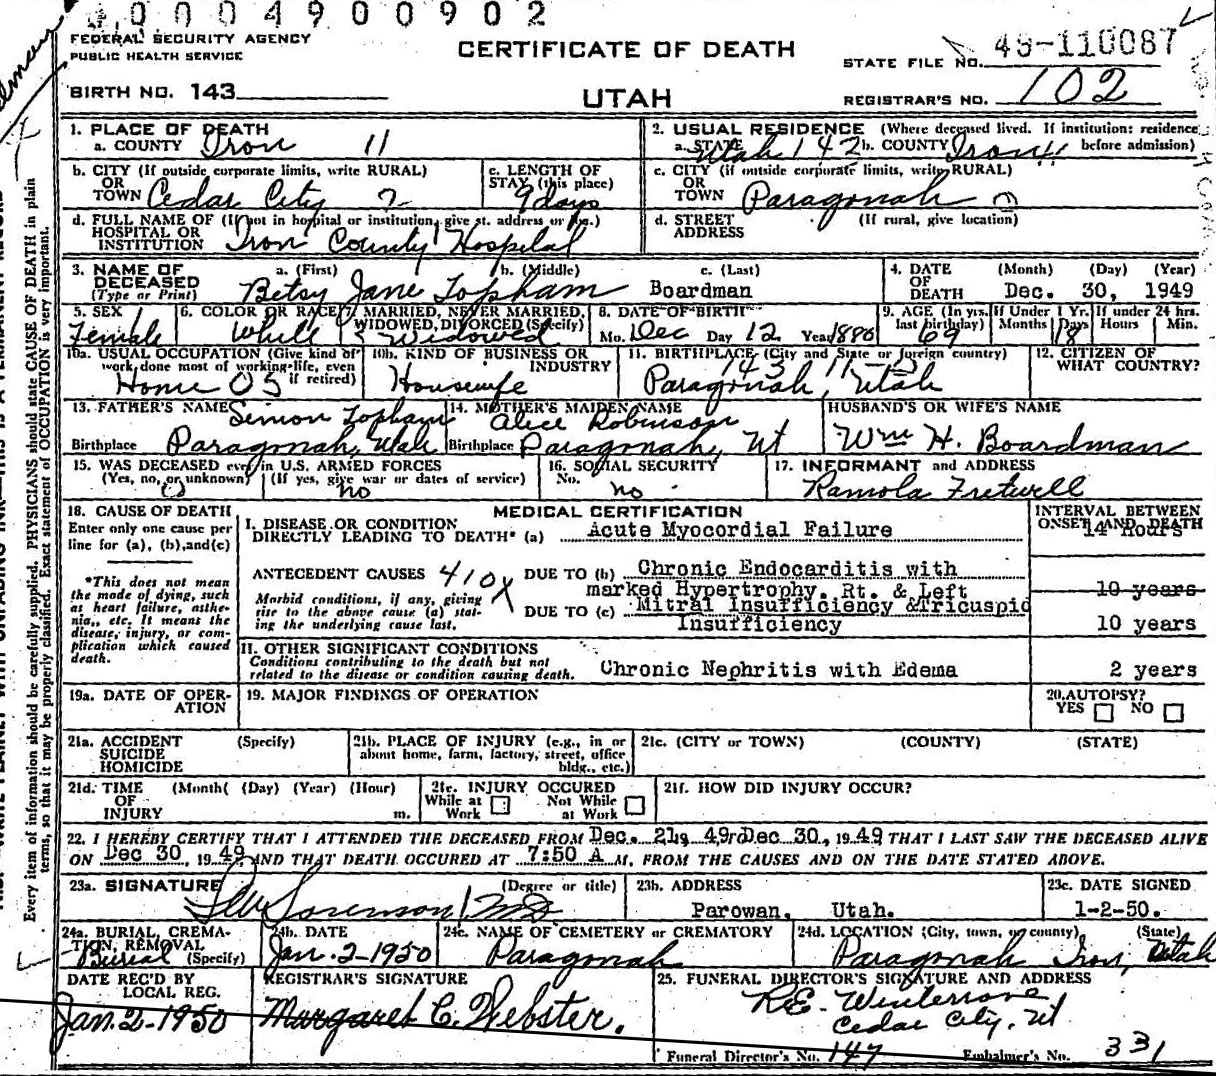 0004900902
FEDERAL SECURITY AGENCY
PUBLIC HEALTH SERVICE
CERTIFICATE OF DEATH
STATE FILE NO. 49-110087
BIRTH NO. 143
UTAH
REGISTRAR'S NO. 102
1. PLACE OF DEATH
a. COUNTY Iron 11
2. USUAL RESIDENCE (Where deceased lived. If institution: residence before admission)
a. STATE Utah 143 b. COUNTY Iron 11
b. CITY (If outside corporate limits, write RURAL)
OR
TOWN Cedar City 2
c. LENGTH OF
STAY (this place)
9 days
c. CITY (if outside corporate limits, write RURAL)
OR
TOWN Paragonah
d. FULL NAME OF (If not in hospital or institution, give st. address or loc.)
HOSPITAL OR
INSTITUTION Iron County Hospital
d. STREET
ADDRESS
(If rural, give location)
3. NAME OF
DECEASED
(Type or Print)
a. (First) b. (Middle) c. (Last)
Betsy Jane Topham Boardman
4. DATE
OF
DEATH
(Month) (Day) (Year)
Dec. 30, 1949
5. SEX
Female
6. COLOR OR RACE
White
7. MARRIED, NEVER MARRIED,
WIDOWED, DIVORCED (Specify)
Widowed
8. DATE OF BIRTH
Mo. Dec Day 12 Year 1880
9. AGE (In yrs. last birthday) 69
If Under 1 Yr. Months Days 18
If under 24 hrs. Hours Min.
10a. USUAL OCCUPATION (Give kind of
work done most of working life, even
if retired)
Home 05
10b. KIND OF BUSINESS OR
INDUSTRY
Housewife
11. BIRTHPLACE (City and State or foreign country)
143 11-5
Paragonah, Utah
12. CITIZEN OF
WHAT COUNTRY?
13. FATHER'S NAME Simon Topham
Birthplace Paragonah, Utah
14. MOTHER'S MAIDEN NAME
Alice Robinson
Birthplace Paragonah, Ut
HUSBAND'S OR WIFE'S NAME
Wm H. Boardman
15. WAS DECEASED ever in U.S. ARMED FORCES
(Yes, no, or unknown) (If yes, give war or dates of service)
no
16. SOCIAL SECURITY
No. no
17. INFORMANT and ADDRESS
Ramola Fretwell
18. CAUSE OF DEATH
Enter only one cause per
line for (a), (b), and (c)
*This does not mean
the mode of dying, such
as heart failure, asthe-
nia, etc. It means the
disease, injury, or com-
plication which caused
death.
MEDICAL CERTIFICATION
I. DISEASE OR CONDITION
DIRECTLY LEADING TO DEATH* (a) Acute Myocordial Failure
INTERVAL BETWEEN
ONSET AND DEATH
14 Hours
ANTECEDENT CAUSES 410X
Morbid conditions, if any, giving
rise to the above cause (a) stat-
ing the underlying cause last.
DUE TO (b) Chronic Endocarditis with
marked Hypertrophy. Rt. & Left
10 years
DUE TO (c) Mitral Insufficiency &Tricuspid
Insufficiency
10 years
II. OTHER SIGNIFICANT CONDITIONS
Conditions contributing to the death but not
related to the disease or condition causing death.
Chronic Nephritis with Edema
2 years
19a. DATE OF OPER-
ATION
19. MAJOR FINDINGS OF OPERATION
20. AUTOPSY?
YES NO
21a. ACCIDENT
SUICIDE
HOMICIDE
(Specify)
21b. PLACE OF INJURY (e.g., in or
about home, farm, factory, street, office
bldg., etc.)
21c. (CITY or TOWN) (COUNTY) (STATE)
21d. TIME
OF
INJURY
(Month( (Day) (Year) (Hour)
m.
21e. INJURY OCCURED
While at Work Not While at Work
21f. HOW DID INJURY OCCUR?
22. I HEREBY CERTIFY THAT I ATTENDED THE DECEASED FROM Dec. 21, 1949, TO Dec 30, 1949 THAT I LAST SAW THE DECEASED ALIVE
ON Dec 30, 1949 AND THAT DEATH OCCURED AT 7:50 A M, FROM THE CAUSES AND ON THE DATE STATED ABOVE.
23a. SIGNATURE (Degree or title)
Sorenson MD
23b. ADDRESS
Parowan, Utah.
23c. DATE SIGNED
1-2-50.
24a. BURIAL, CREMA-
TION, REMOVAL
Burial (Specify)
24b. DATE
Jan. 2-1950
24c. NAME OF CEMETERY or CREMATORY
Paragonah
24d. LOCATION (City, town, or county) (State)
Paragonah Iron, Utah
DATE REC'D BY
LOCAL REG.
Jan. 2-1950
REGISTRAR'S SIGNATURE
Margaret C. Webster.
25. FUNERAL DIRECTOR'S SIGNATURE AND ADDRESS
Cedar City, Ut
Funeral Director's No. 147 Embalmer's No. 331
Every item of information should be carefully supplied. PHYSICIANS should state CAUSE OF DEATH in plain
terms, so that it may be properly classified. Exact statement of OCCUPATION is very important.